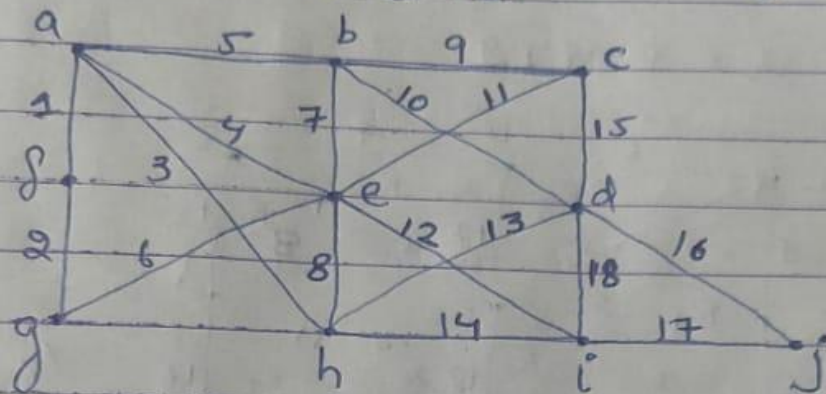 a 5 b 9 c
1 4 7 10 11 15
f 3 e d
2 6 8 12 13 18 16
g h 14 i 17 j